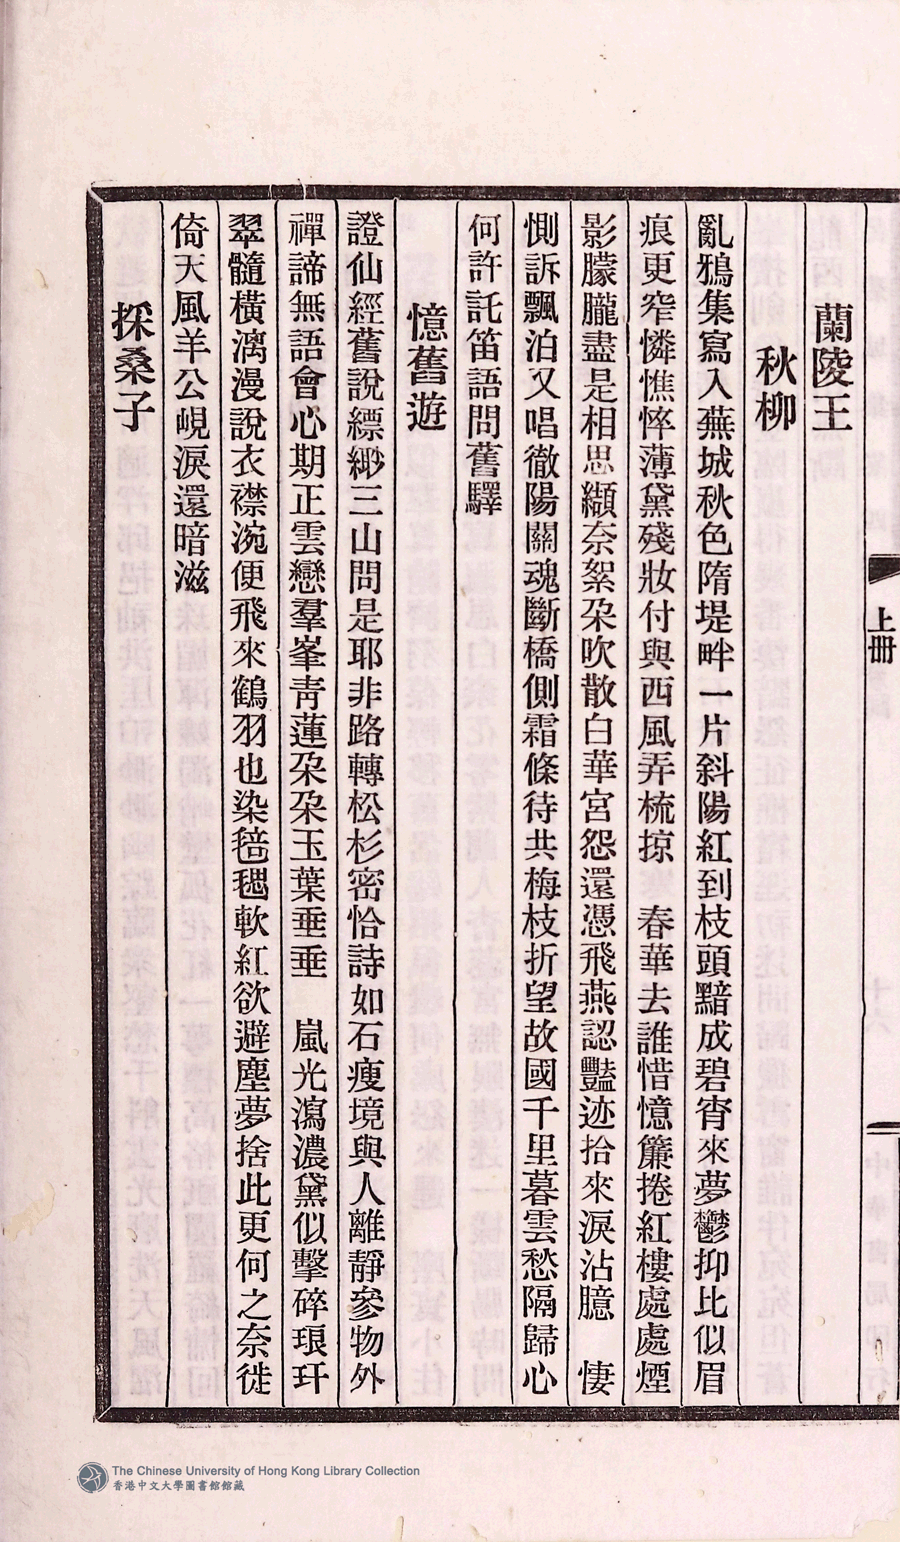 蘭陵王
秋柳
亂鴉集寫入蕪城秋色隋堤畔一片斜陽紅到枝頭黯成碧宵來夢鬱抑比似眉
痕更窄憐憔悴薄黛殘妝付與西風弄梳掠　春華去誰惜憶簾捲紅樓處處煙
影朦朧盡是相思纈奈絮朶吹散白華宮怨還憑飛燕認豔迹拾來淚沾臆　悽
惻訴飄泊又唱徹陽關魂斷橋側霜條待共梅枝折望故國千里暮雲愁隔歸心
何許託笛語問舊驛
憶舊遊
證仙經舊說縹緲三山問是耶非路轉松杉密恰詩如石瘦境與人離靜參物外
禪諦無語會心期正雲戀羣峯靑蓮朶朶玉葉垂垂　嵐光瀉濃黛似擊碎琅玕
翠髓橫漓漫說衣襟涴便飛來鶴羽也染毰毸軟紅欲避塵夢捨此更何之奈徙
倚天風羊公峴淚還暗滋
採桑子
上冊
The Chinese University of Hong Kong Library Collection
香港中文大學圖書館館藏